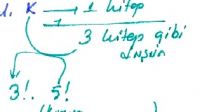 K → 1 kitap
3 kitap gibi
düşün
3!. 5!